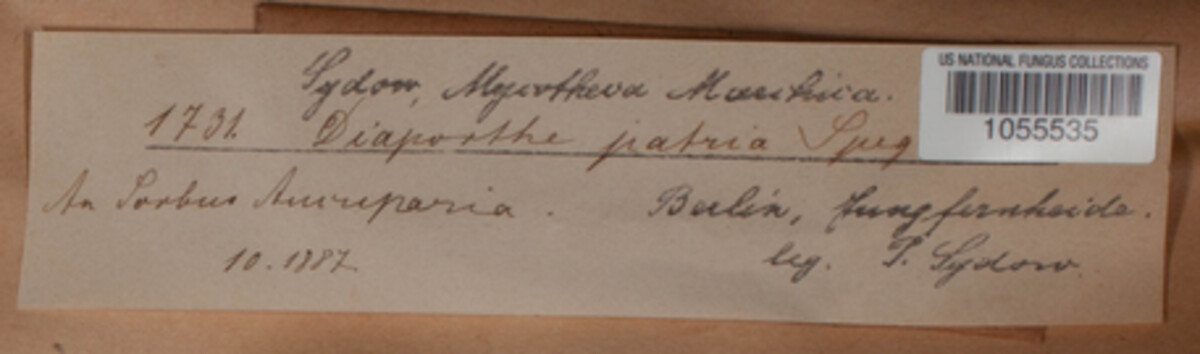 Sydow, Mycotheca Marchica.
US NATIONAL FUNGUS COLLECTIONS
1055535
1731. Diaporthe patria Speg
An Sorbus Aucuparia.
Berlin, Jungfernheide.
10.1887
leg. P. Sydow.